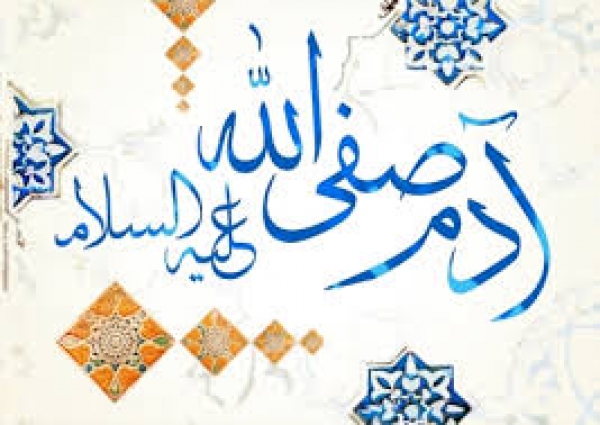 آدم صفی الله
علیه السلام